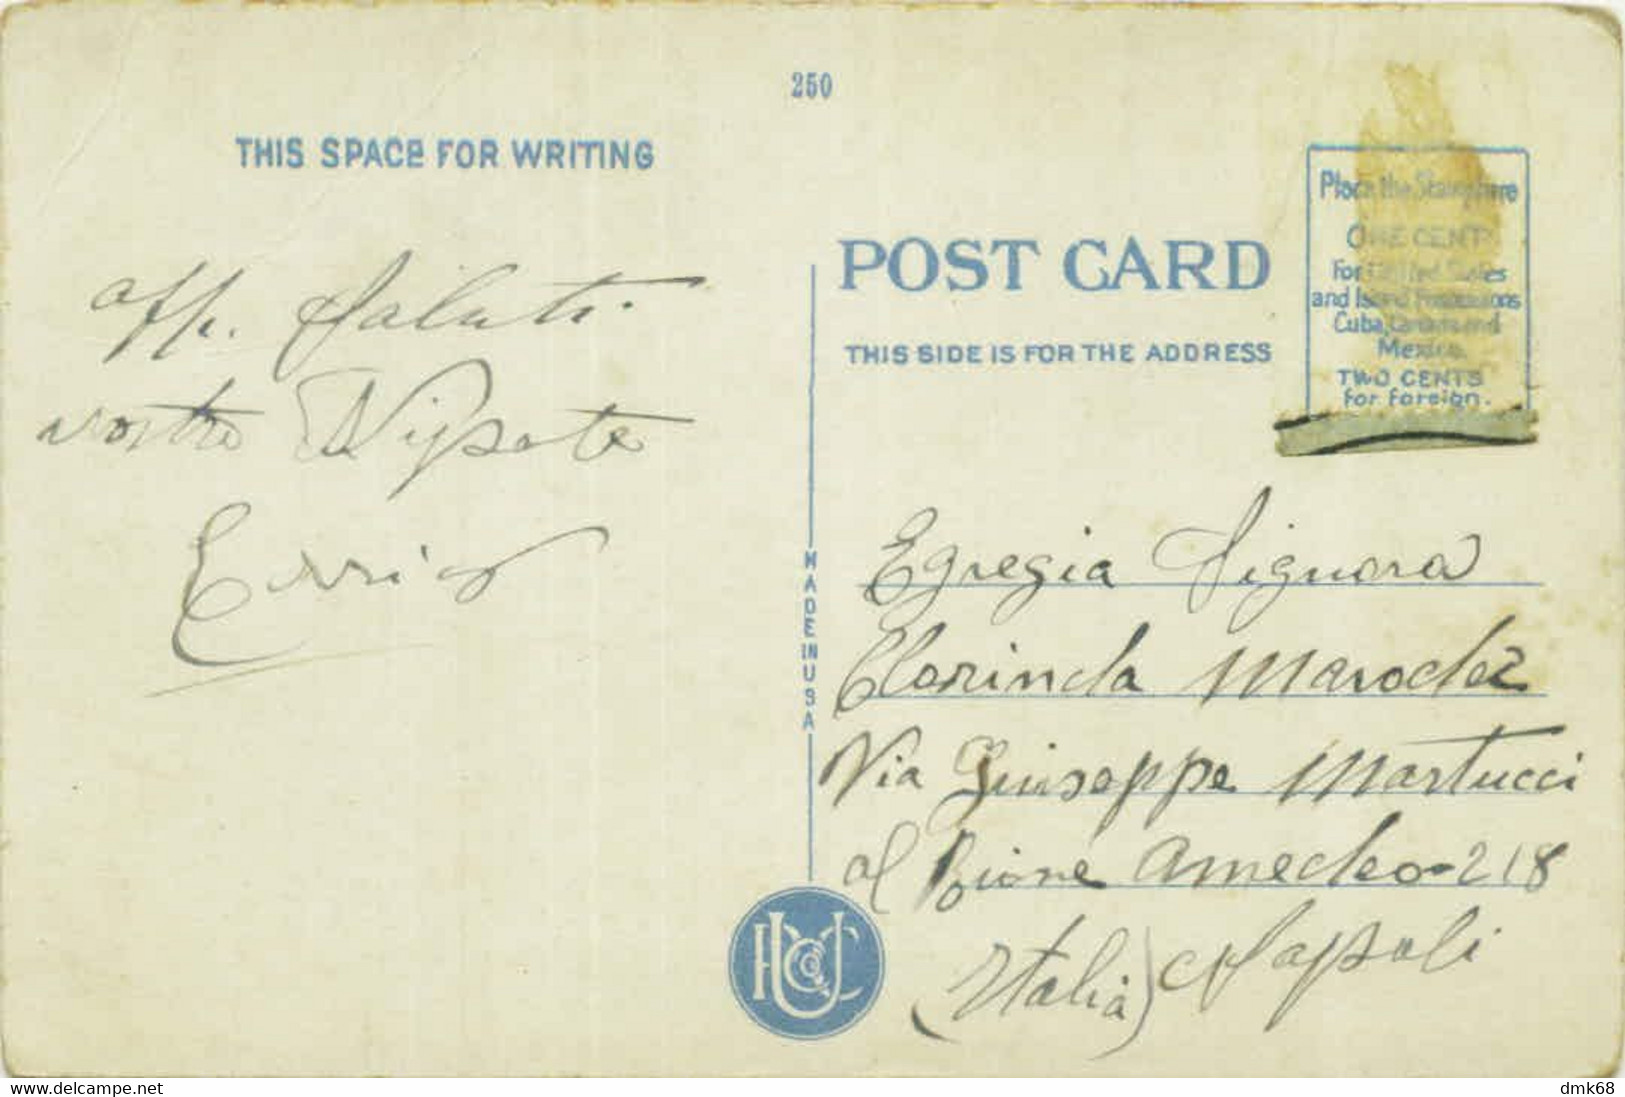 250
THIS SPACE FOR WRITING
Place the Stamp Here
ONE CENT
For United States
and Island Possessions
Cuba, Canada and
Mexico.
TWO CENTS
for Foreign.
POST CARD
THIS SIDE IS FOR THE ADDRESS
aff. Saluti
vostro Nipote
Errico
MADE IN USA
Egregia Signora
Clarinda
Via Giuseppe Martucci
al Rione Amedeo-218
(Italia) Napoli
www.delcampe.net
dmk68